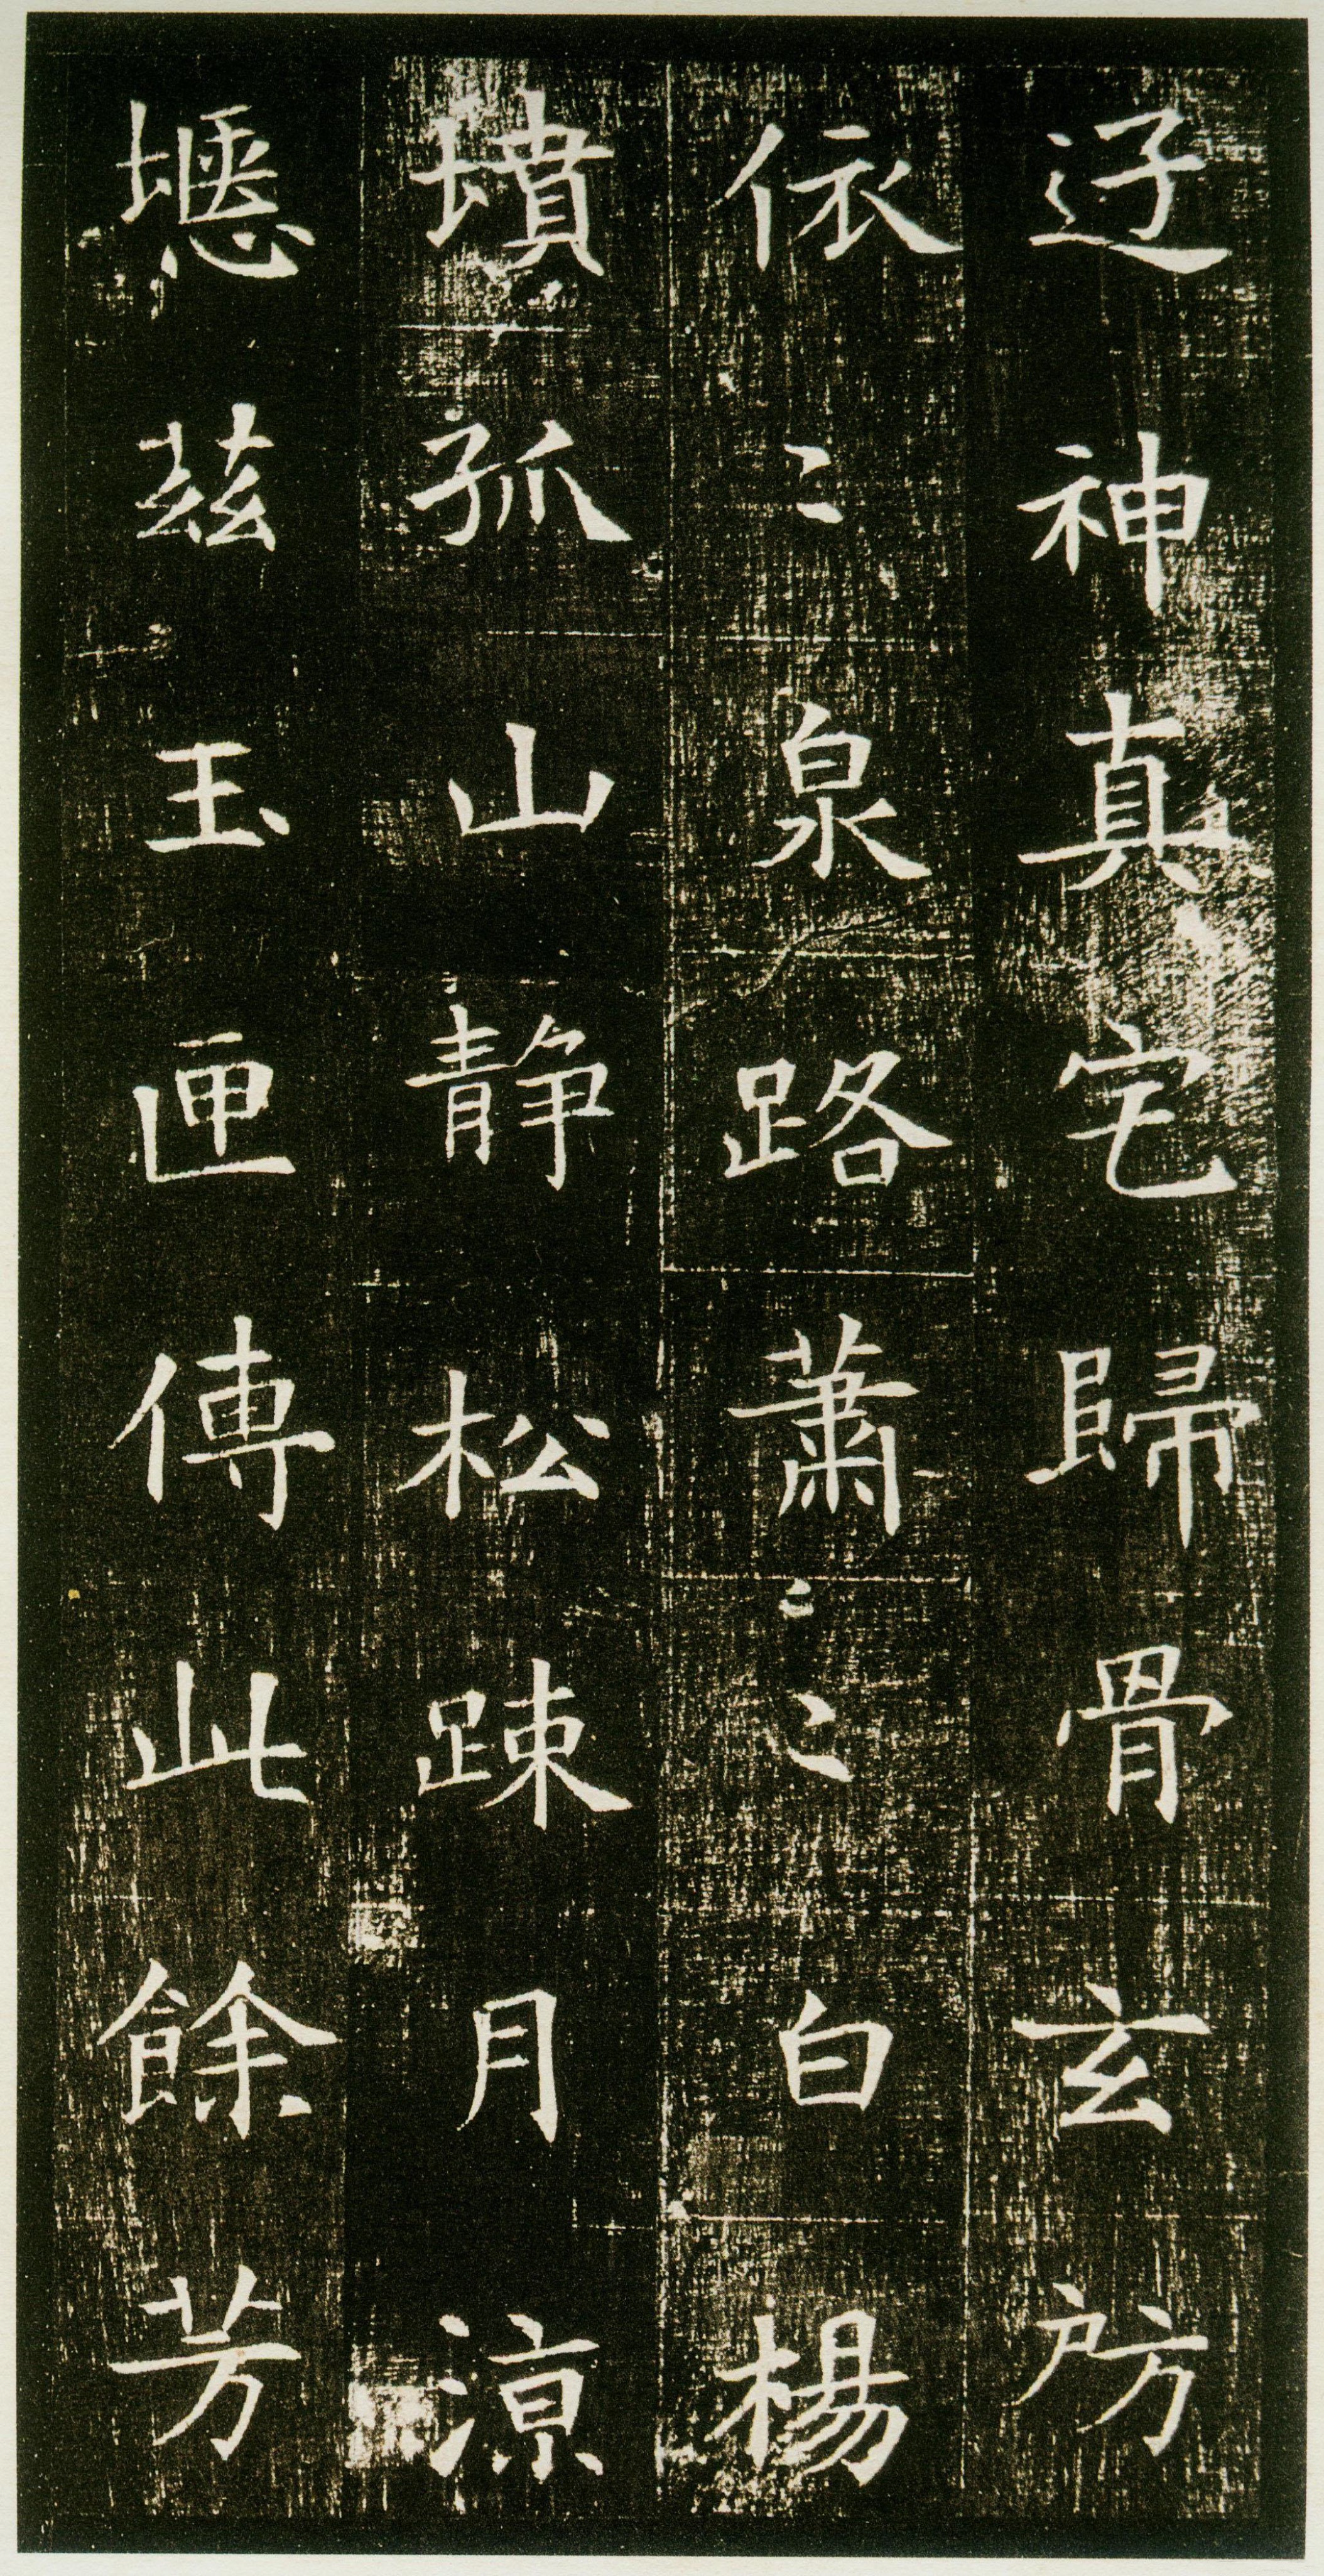 辸神真宅歸骨玄房
依〻泉路蕭〻白楊
墳孤山静松踈月凉
壥兹玉匣傳此餘芳